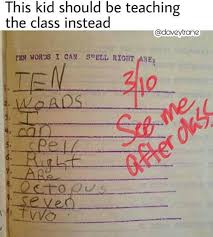 This kid should be teaching
the class instead
@daveytrane
TEN WORDS I CAN SPELL RIGHT ARE:
1. TEN
2. WORDS
3. I
4. can
5. spell
6. Right
7. ARe
8. octopus
9. seven
10. TWO
3/10
See me
after class